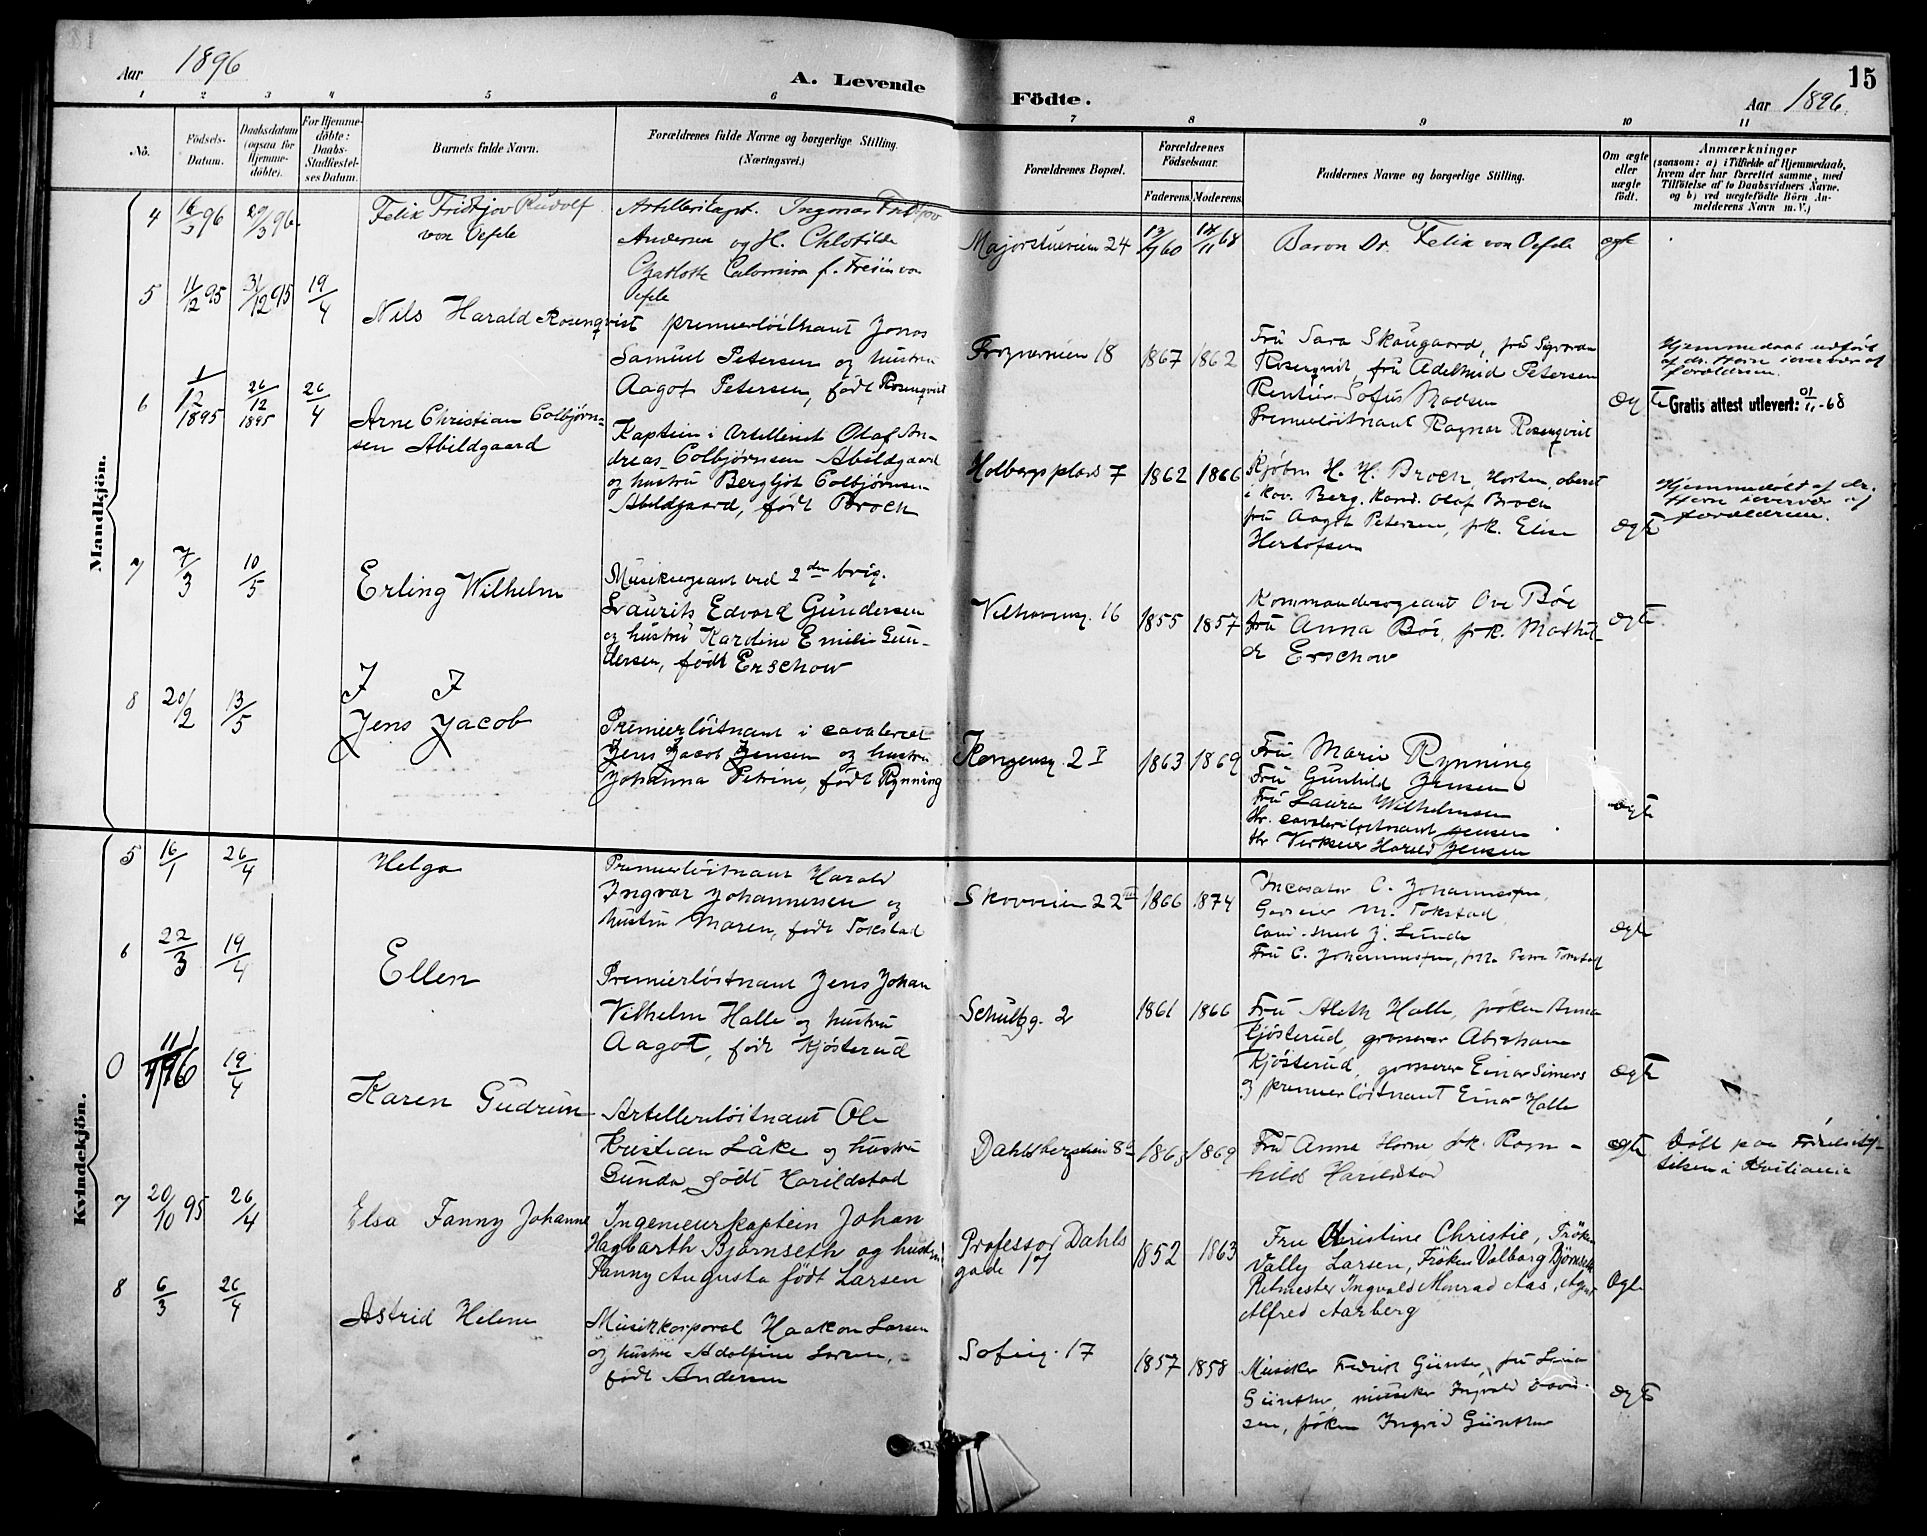 Aar 1896
A. Levende
Födte.
Aar 1896.
15
1 2 3 4 5 6 7 8 9 10 11
No.
Födsels-
Datum.
Daabsdatum
(ogsaa for
Hjemme-
döbte).
For Hjemme-
döbte:
Daabs-
Stadfæstel-
ses Datum.
Barnets fulde Navn.
Forældrenes fulde Navne og borgerlige Stilling.
(Næringsvei.)
Forældrenes Bopæl.
Forældrenes
Födselsaar.
Faderens. Moderens.
Faddernes Navne og borgerlige Stilling.
Om ægte
eller
uægte
födt.
Anmærkninger
(saasom: a) i Tilfælde af Hjemmedaab,
hvem der har forrettet samme, med
Tilföielse af to Daabsvidners Navne,
og b) ved uægtefödte Börn An-
melderens Navn m. V.)
Mandkjön.
4 16/3 96 29/3 96
Felix Fridtjov Rudolf
von Oefele
Artillerikapt. Ingmar Fridtjov
Andersen og H. Chlotilde
Charlotte f.
Oefele
Majorstuveien 24
60 68
Baron Dr. Felix von Oefele
ægte
5 11/12 95 31/12 95 19/4
Nils Harald Rosenqvist
premierløitnant Jonas
Samuel Petersen og hustru
Aagot Petersen, født Rosenqvist
Frognerveien 18
1867 1862
Fru Sara Skougaard, fru
Rosenqvist, fru Adelheid Petersen
Rentier Sofus Madsen
Premierløitnant Ragnar Rosenqvist
ægte
Hjemmedaab udført
af dr. Horn i overvær af
forældrene.
Gratis attest utlevert: 01/11-68
6 1/12 1895 26/12 1895 26/4
Arne Christian Colbjørn-
sen Abildgaard
Kaptein i Artilleriet Olaf An-
dreas Colbjørnsen Abildgaard
og hustru Bergljot Colbjørnsen
Abildgaard, født Broch
Holbergs plads 7
1862 1866
H. H. Broch, Horten, oberst
i kav. Berg, kand. Olaf Broch
fru Aagot Petersen, frk. Elise
Hertofsen
ægte
Hjemmedøbt af dr.
Horn i overvær af
forældrene.
7 7/3 10/5
Erling Wilhelm
Musiksergeant ved 2den brig.
Laurits Edvard Gundersen
og hustru Kardine Emilie Gun-
dersen, født Erschow
16
1855 1857
Kommandersergeant Ove Bøe
fru Anna Bøe, frk. Mathil-
de Erschow
ægte
8 20/2 13/5
J J
Jens Jacob
Premierløitnant i cavaleriet
Jens Jacob Jensen og hustru
Johanna Petrine, født Rynning
Kongensg. 2 I
1863 1869
Fru Marie Rynning
Fru Gunhild Jensen
Fru Laura Wilhelmsen
Hr. cavaleriløitnant Jensen
Hr Verkseier Harald Jensen
ægte
Kvindekjön.
5 16/1 26/4
Helga
Premierløitnant Harald
Ingvar Johannessen og
hustru Maren, født Tokstad
Skovveien 22 III
1866 1874
C. Johannessen,
Gaardeier M. Tokstad
Cand. med J. Lunde
Fru C. Johannessen, frk. Tokstad
ægte
6 22/3 19/4
Ellen
Premierløitnant Jens Johan
Vilhelm Halle og hustru
Aagot, født Kjøsterud
Schultzg. 2
1861 1866
Fru Aleth Halle, frøken Anna
Kjøsterud, grosserer Abraham
Kjøsterud, grosserer Einar Simers
og premierløitnant Einar Halle
ægte
0 11/1 96 19/4
Karen Gudrun
Artilleriløitnant Ole
Kristian Låke og hustru
Gunda, født Harildstad
Dahlsbergstien 8
1869
Fru Anna Horne, frk. Ragn-
hild Harildstad
ægte
Døbt paa Fødselsstif-
telsen i Kristiania
7 20/10 95 26/4
Elsa Fanny Johanne
Ingenieurkaptein Johan
Hagbarth Bjørnseth og hustru
Fanny Augusta født Larsen
Professor Dahls
gade 17
1852 1863
Fru Christine Christie, Frøken
Vally Larsen, Frøken Valborg Bjørnseth
Ritmester Ingvald Monrad Aas, Agent
Alfred Aarberg
Ægte
8 6/3 26/4
Astrid Helene
Musikkorporal Haakon Larsen
og hustru Adolfine Larsen,
født Andersen
Sofieg. 17
1857 1858
Musiker Fredrik Günther, fru Lina
Günther, musiker Ingvald
sen, frøken Ingrid Günther
ægte